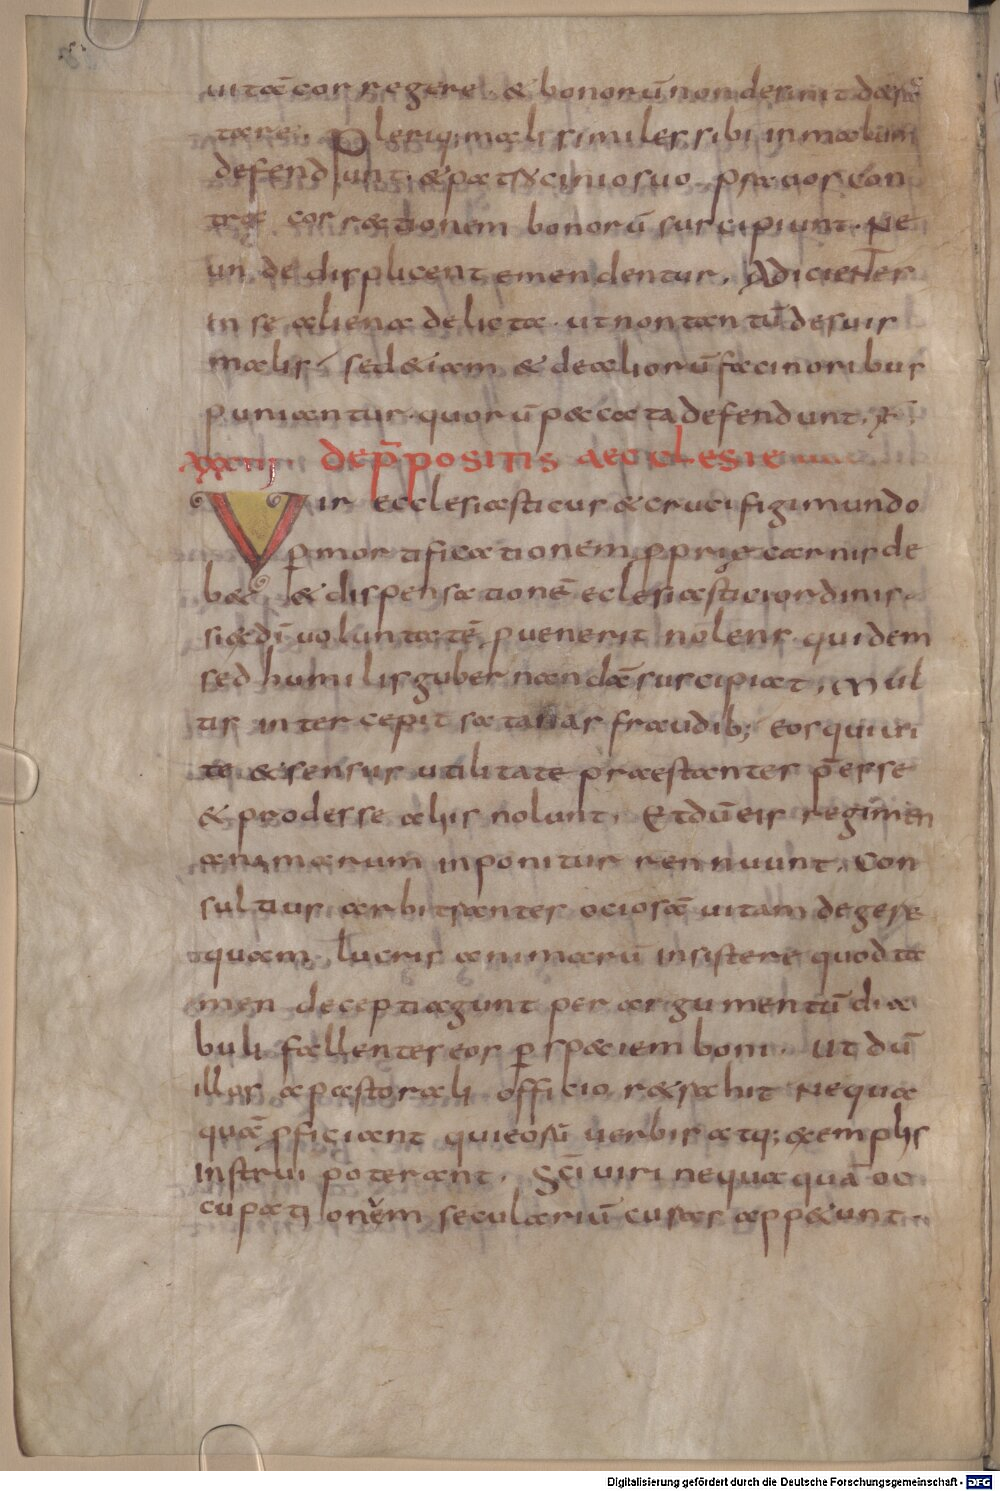 uitā corregere & bonorū non desinit detrac
tare. Pleriq; mali similes sibi in malum
defendunt. & patrocinio suo. prauos con
tra correctionem bonorū suscipiunt. Ne
unde displicent emendentur. Adicientes
in se aliena delicta. ut non tantū de suis
malis. sed &iam & de aliorū facinoribus
puniantur. quorū peccata defendunt.
XXXIII de p̄positis aecclesie
Vir ecclesiasticus & crucifigi mundo
p mortificationem pprię carnis de
b& & dispensationē eclesiastici ordinis.
si ad dī uoluntatē puenerit nolens quidem
sed humilis gubernandā suscipiat. Mul
tis intercepit satanas fraudib; eos qui ui
te & sensus utilitate praestantes p̄esse
& prodesse aliis nolunt. Et dū eis regimen
animarum inponitur rennuunt. Con
sultius arbitrantes ociosā uitam degere
quam lucris animarū insistere quod ta
men decepti agunt per argumentū dia
buli fallentes eos p speciem boni. ut dū
illos a pastorali officio r&rahit nequa
quā pficiant qui eorū uerbis atq; exemplis
instrui poterant. Sci uiri nequaquā oc
cupationem seculariū curas app&unt.
Digitalisierung gefördert durch die Deutsche Forschungsgemeinschaft - DFG